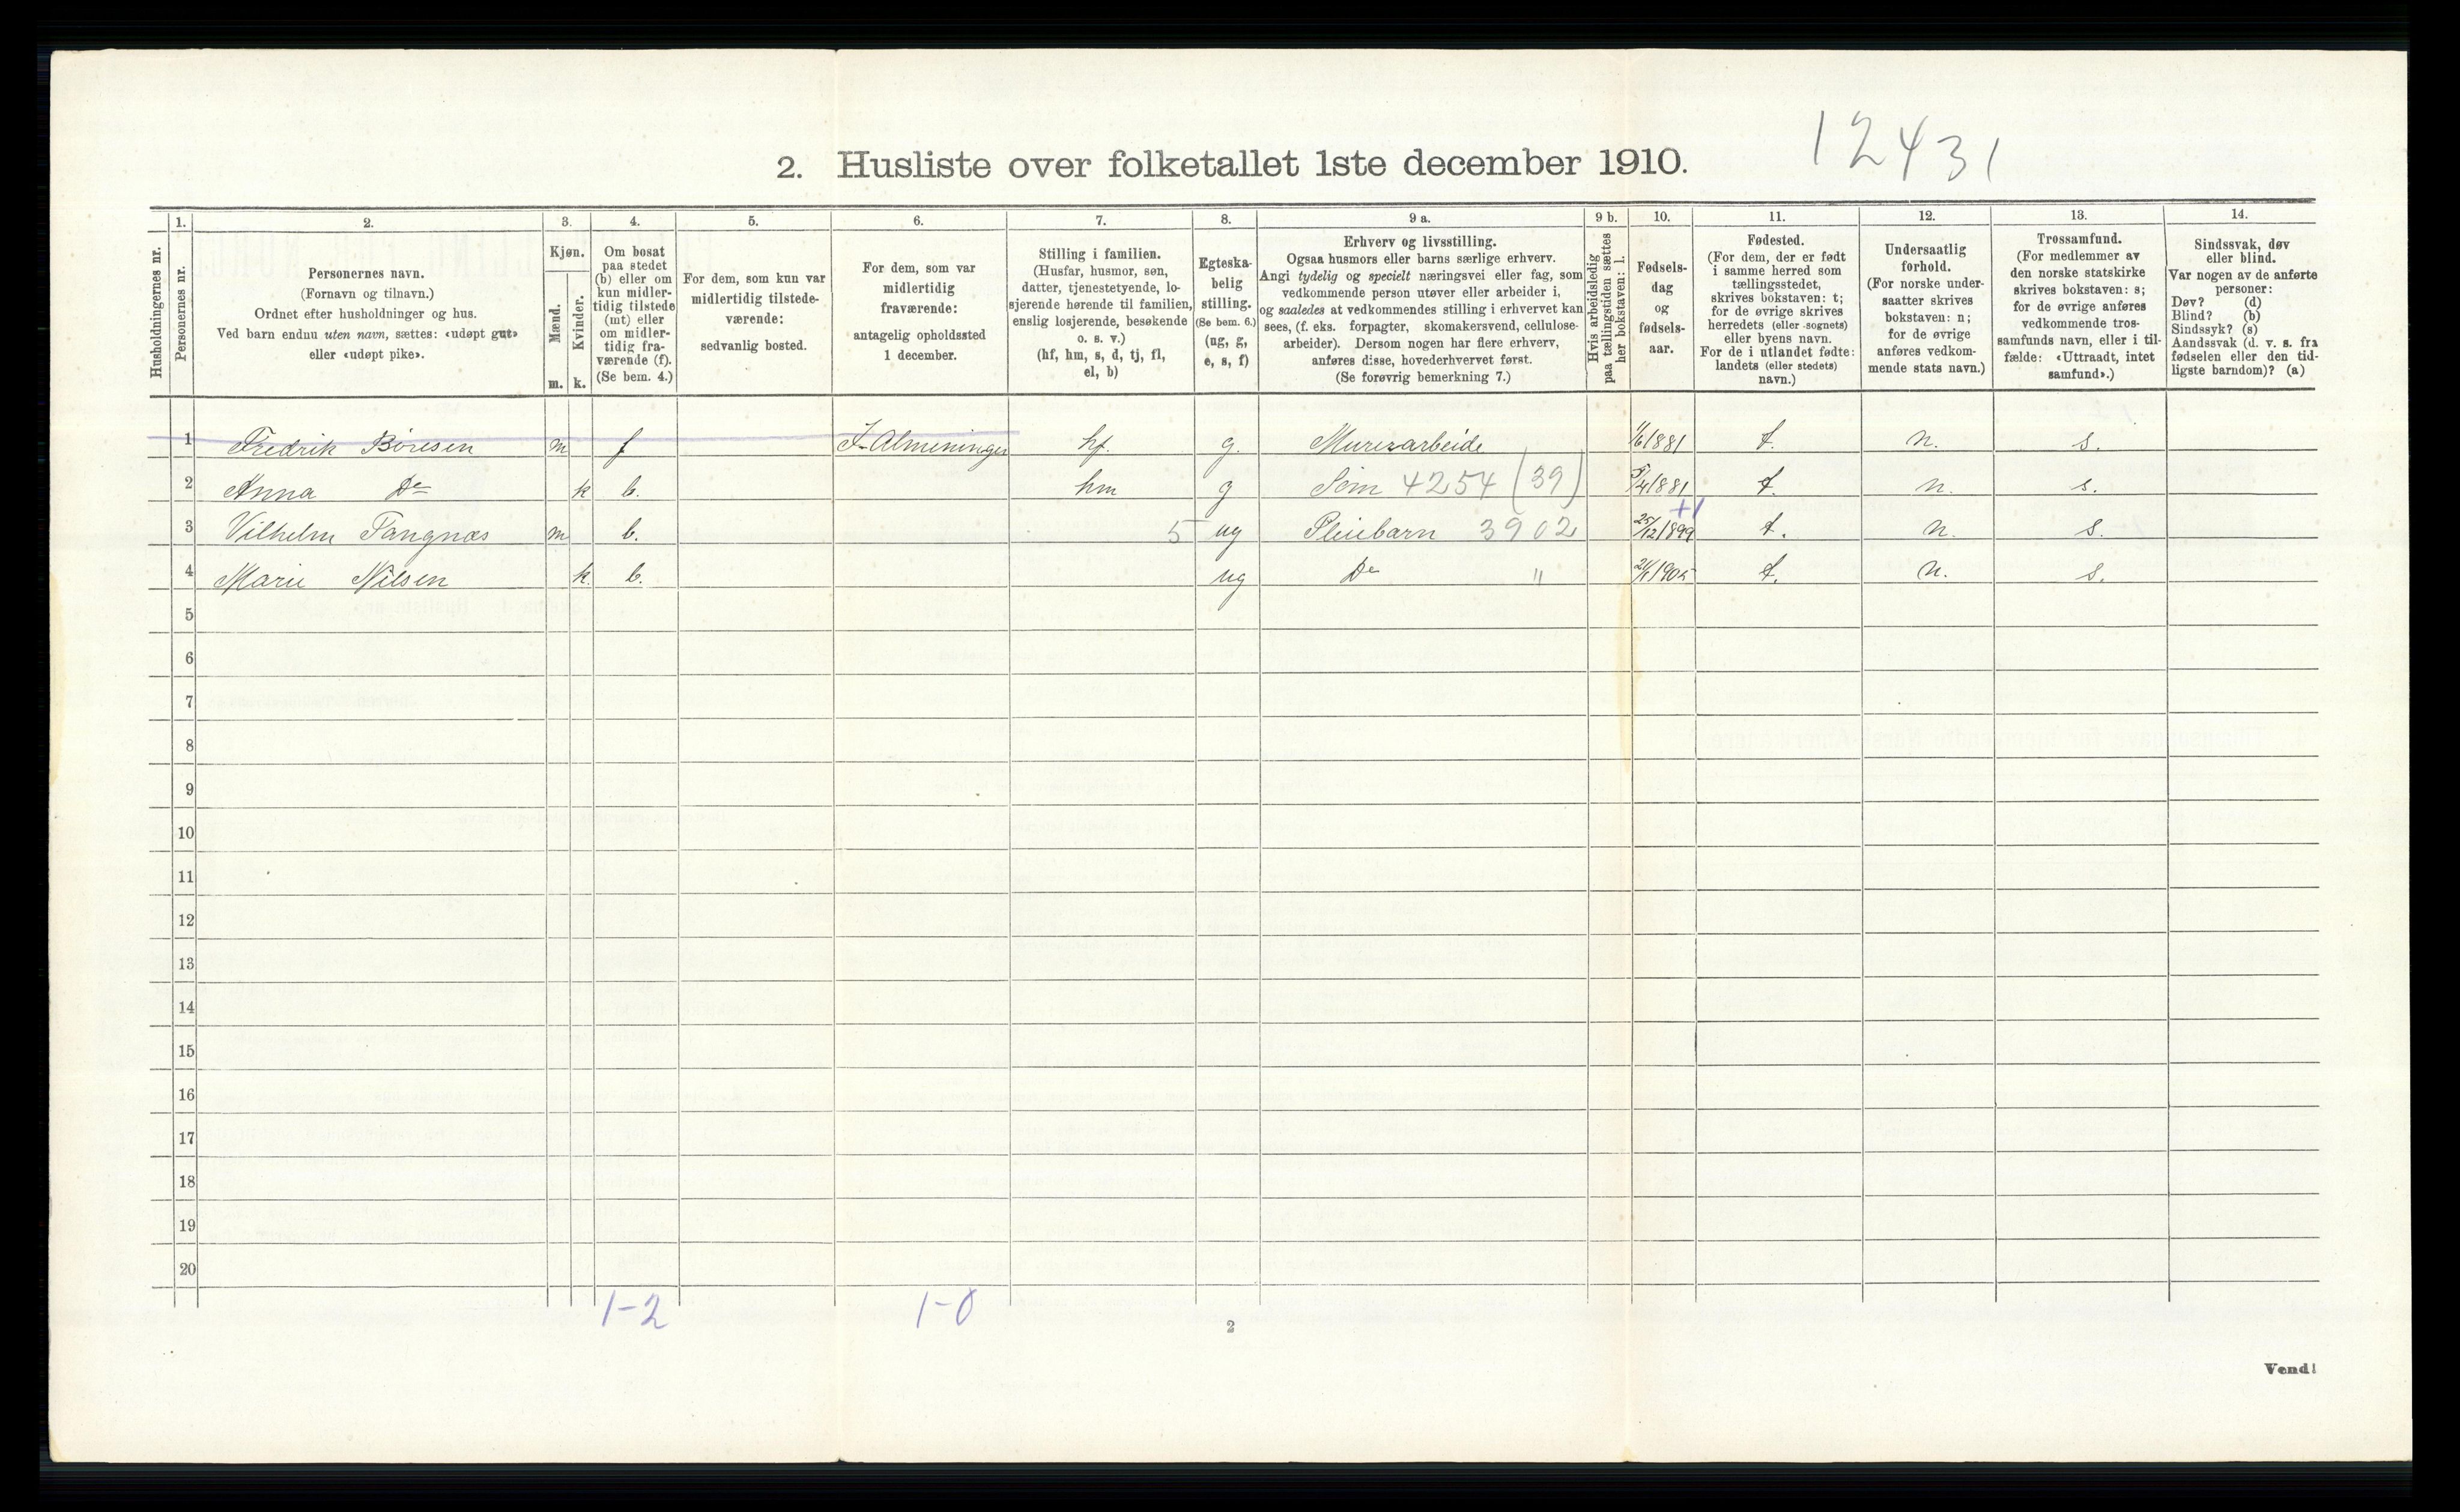 12431
2. Husliste over folketallet 1ste december 1910.
1. 2. 3. 4. 5. 6. 7. 8. 9 a. 9 b. 10. 11. 12. 13. 14.
Husholdningernes nr.
Personernes nr.
Personernes navn.
(Fornavn og tilnavn.)
Ordnet efter husholdninger og hus.
Ved barn endnu uten navn, sættes: «udøpt gut»
eller «udøpt pike».
Kjøn.
Mænd.
Kvinder.
m. k.
Om bosat
paa stedet
(b) eller om
kun midler-
tidig tilstede
(mt) eller
om midler-
tidig fra-
værende (f).
(Se bem. 4.)
For dem, som kun var
midlertidig tilstede-
værende:
sedvanlig bosted.
For dem, som var
midlertidig
fraværende:
antagelig opholdssted
1 december.
Stilling i familien.
(Husfar, husmor, søn,
datter, tjenestetyende, lo-
sjerende hørende til familien,
enslig losjerende, besøkende
o. s. v.)
(hf, hm, s, d, tj, fl,
el, b)
Egteska-
belig
stilling.
(Se bem. 6.)
(ug, g,
e, s, f)
Erhverv og livsstilling.
Ogsaa husmors eller barns særlige erhverv.
Angi tydelig og specielt næringsvei eller fag, som
vedkommende person utøver eller arbeider i,
og saaledes at vedkommendes stilling i erhvervet kan
sees, (f. eks. forpagter, skomakersvend, cellulose-
arbeider). Dersom nogen har flere erhverv,
anføres disse, hovederhvervet først.
(Se forøvrig bemerkning 7.)
Hvis arbeidsledig
paa tællingstiden sættes
her bokstaven: l.
Fødsels-
dag
og
fødsels-
aar.
Fødested.
(For dem, der er født
i samme herred som
tællingsstedet,
skrives bokstaven: t;
for de øvrige skrives
herredets (eller sognets)
eller byens navn.
For de i utlandet fødte:
landets (eller stedets)
navn.)
Undersaatlig
forhold.
(For norske under-
saatter skrives
bokstaven: n;
for de øvrige
anføres vedkom-
mende stats navn.)
Trossamfund.
(For medlemmer av
den norske statskirke
skrives bokstaven: s;
for de øvrige anføres
vedkommende tros-
samfunds navn, eller i til-
fælde: «Uttraadt, intet
samfund».)
Sindssvak, døv
eller blind.
Var nogen av de anførte
personer:
Døv? (d)
Blind? (b)
Sindssyk? (s)
Aandssvak (d. v. s. fra
fødselen eller den tid-
ligste barndom)? (a)
1 Fredrik Böresen m f Almeninger hf. g. Murerarbeide 1/6 1881 t. n. s.
2 Anna Do k b. hm g Söm 4254 (39) 5/4 1881 t. n. s.
+1
3 Vilhelm Tangnæs m b. 5 ug Pleiebarn 3902 25/12 1899 t. n. s.
4 Marie Nilsen k. b. ug Do " 1905 t. n. s.
5
6
7
8
9
10
11
12
13
14
15
16
17
18
19
20
1-2 1-0
2
Vend!